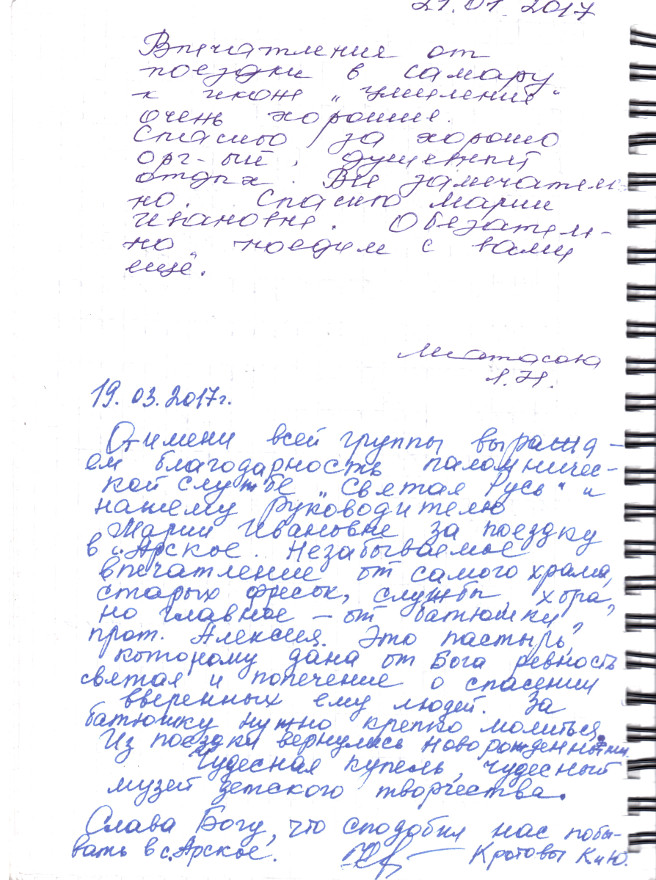 21.01.2017
Впечатления от
поездки в Самару
к иконе „Умиление"
очень хорошие.
Спасибо за хорошо
орг-ый, душевный
отдых. Всё замечатель-
но. Спасибо Марии
Ивановне. Обязатель-
но поедем с вами
ещё.
Л.Н.
19.03.2017г.
От имени всей группы выража-
ем благодарность паломничес-
кой службе „Святая Русь" и
нашему руководителю
Марии Ивановне за поездку
в с. Арское. Незабываемое
впечатление от самого храма,
старых фресок, службы, хора,
но главное – от батюшки,
прот. Алексия. Это пастырь,
которому дана от Бога ревность
святая и попечение о спасении
вверенных ему людей. За
батюшку нужно крепко молиться.
Из поездки вернулись новорожденными.
Чудесная купель, чудесный
музей детского творчества.
Слава Богу, что сподобил нас побы-
вать в с. Арское. Кротовы К и Ю.